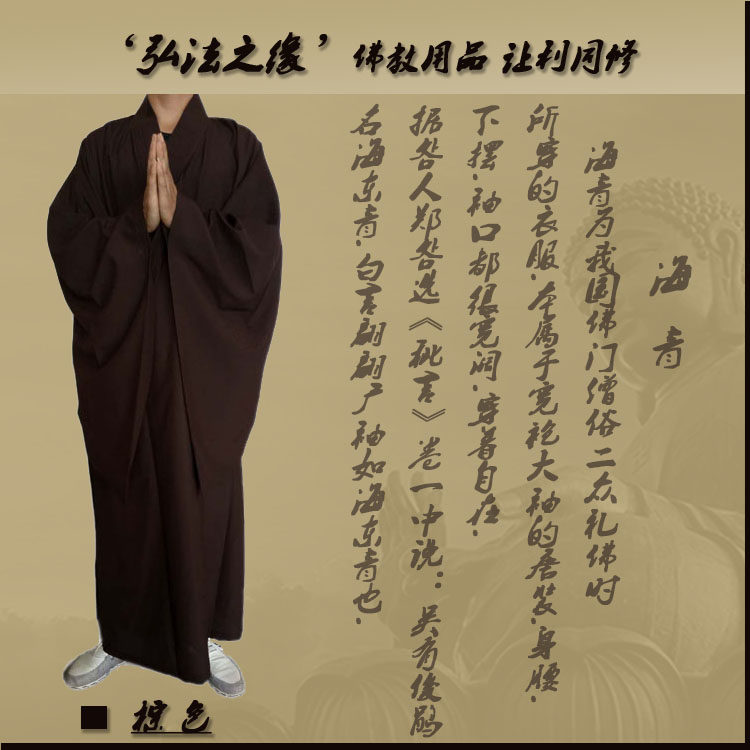 ‘弘法之缘’佛教用品 让利同修
海青
海青为我国佛门僧俗二众礼佛时
所穿的衣服.本属于宽袍大袖的唐装.身腰.
下摆.袖口都很宽阔.穿着自在.
据咎人郑咎选《秕言》卷一中说：吴有俊鹘
名海东青.白言翩翩广袖如海东青也.
棕色